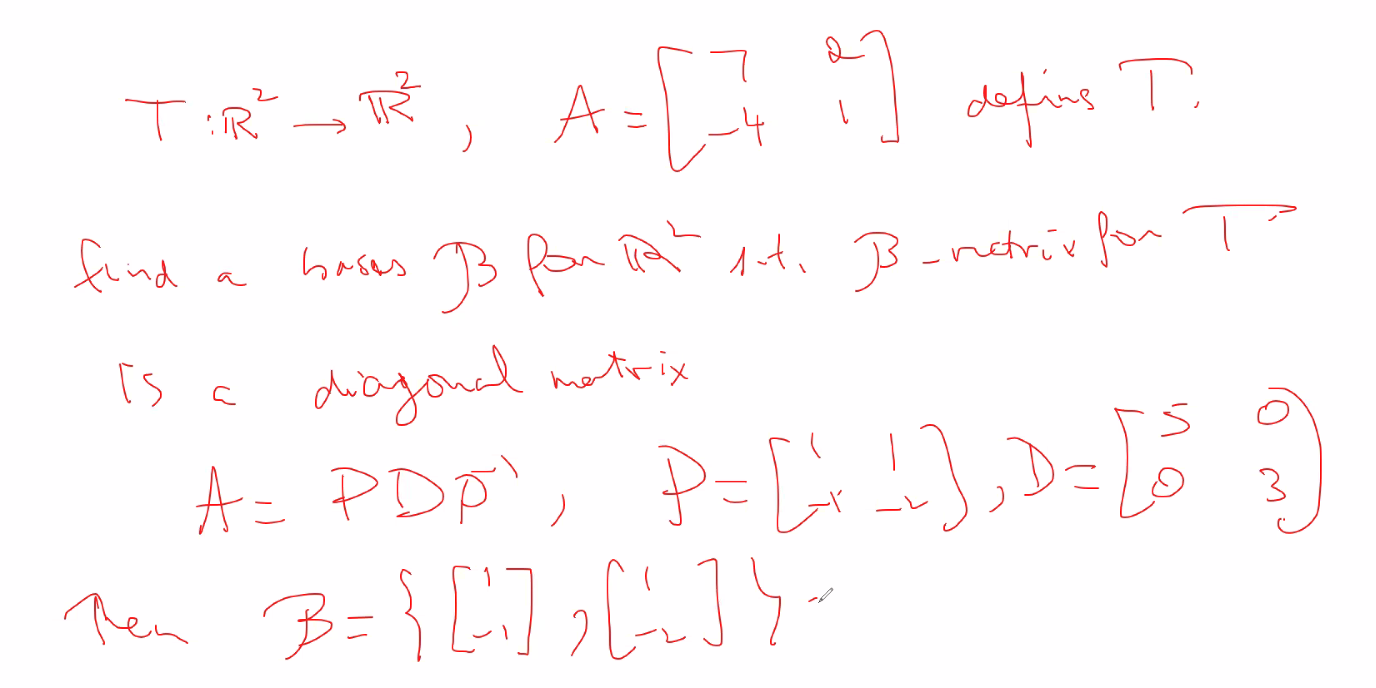 T : ℝ² → ℝ², A = [7 2; -4 1] defins T.
find a bases B for ℝ² s.t. B-matrix for T
is a diagonal matrix
A = PDP⁻¹, P = [1 1; -1 -2], D = [5 0; 0 3]
Then B = {[1; -1], [1; -2]}